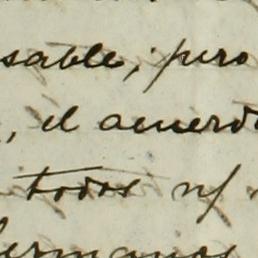 sable, pero
, el acuerdo
todos n/
hermanos